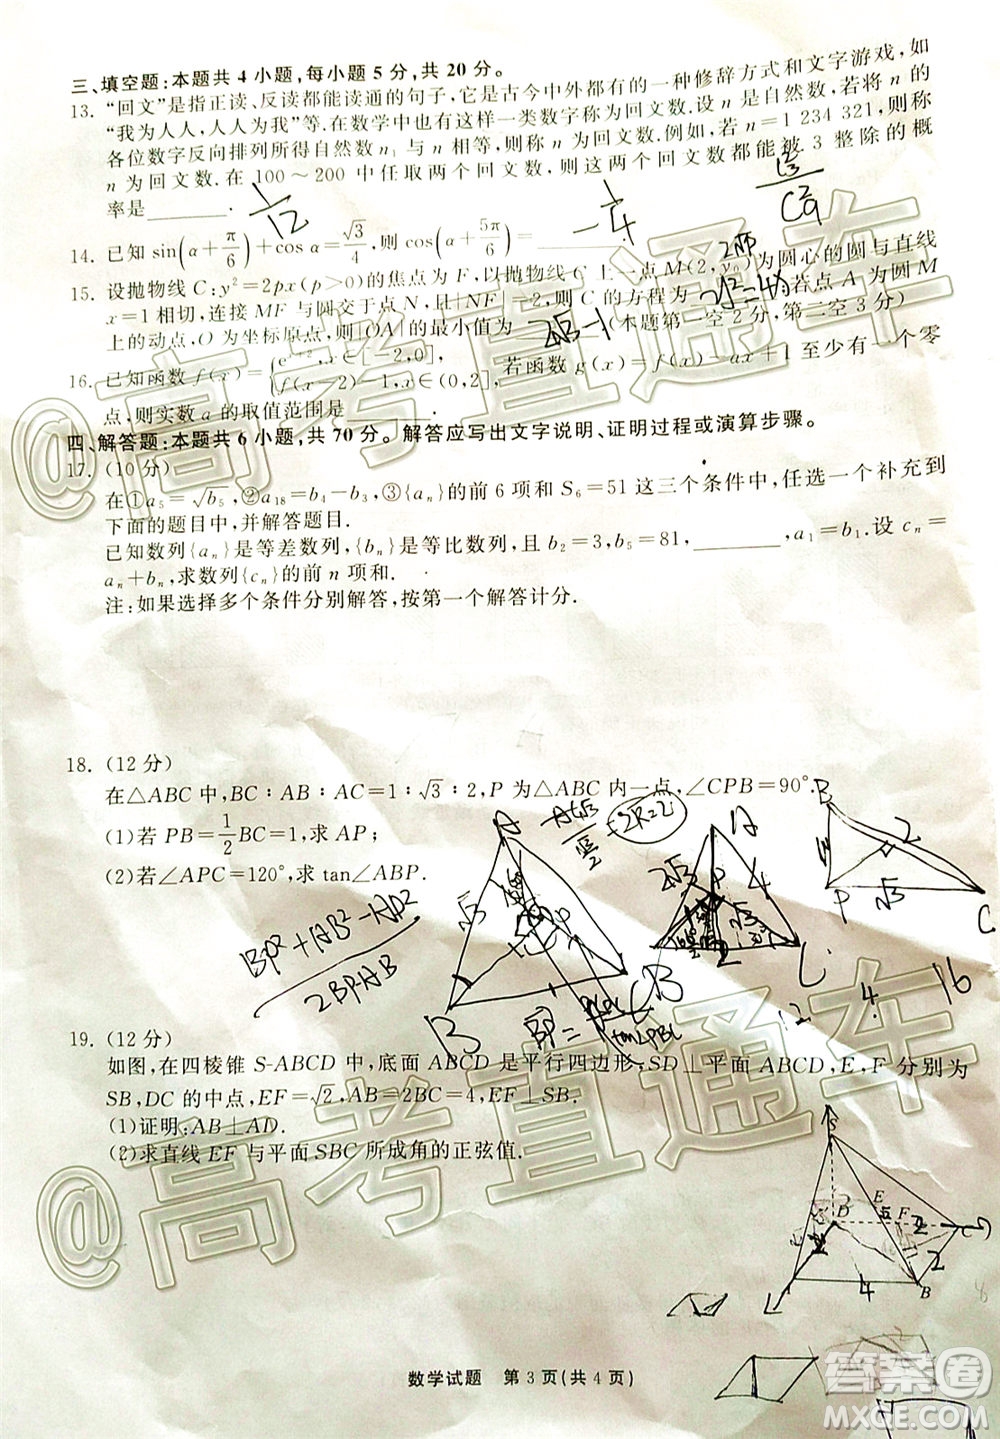 三、填空题:本题共 4 小题,每小题 5 分,共 20 分。
13. “回文”是指正读、反读都能读通的句子,它是古今中外都有的一种修辞方式和文字游戏,如
“我为人人,人人为我”等.在数学中也有这样一类数字称为回文数.设 n 是自然数,若将 n 的
各位数字反向排列所得自然数 n₁ 与 n 相等,则称 n 为回文数.例如,若 n=1 234 321,则称
n 为回文数.在 100~200 中任取两个回文数,则这两个回文数都能被 3 整除的概
率是________.
1/12
-1/4
C²₉
14. 已知 sin(α+π/6)+cos α=√3/4,则 cos(α+5π/6)=________.
15. 设抛物线 C:y²=2px(p>0)的焦点为 F,以抛物线上一点 M(2,y₀)为圆心的圆与直线
x=1 相切,连接 MF 与圆交于点 N,且|NF|=2,则 C 的方程为 y²=4x ;若点 A 为圆 M
上的动点,O 为坐标原点,则|OA|的最小值为 2√3-1 .(本题第一空 2 分,第二空 3 分)
16. 已知函数 f(x)={ ,x∈[-2,0],
f(x-2)-1,x∈(0,2], 若函数 g(x)=f(x)-ax+1 至少有一个零
点,则实数 a 的取值范围是________.
四、解答题:本题共 6 小题,共 70 分。解答应写出文字说明、证明过程或演算步骤。
17. (10 分)
在①a₅=√b₅,②a₁₈=b₄-b₃,③{aₙ}的前 6 项和 S₆=51 这三个条件中,任选一个补充到
下面的题目中,并解答题目.
已知数列{aₙ}是等差数列,{bₙ}是等比数列,且 b₂=3,b₅=81,________,a₁=b₁.设 cₙ=
aₙ+bₙ,求数列{cₙ}的前 n 项和.
注:如果选择多个条件分别解答,按第一个解答计分.
18. (12 分)
在△ABC 中,BC∶AB∶AC=1∶√3∶2,P 为△ABC 内一点,∠CPB=90°.
(1)若 PB=1/2BC=1,求 AP;
(2)若∠APC=120°,求 tan∠ABP.
2R=2
BP²+AB²-AP²
2BP·AB
A
B
C
√3
A
P
B
4
2√3
B
2
P
√3
C
2 4 16
19. (12 分)
如图,在四棱锥 S-ABCD 中,底面 ABCD 是平行四边形,SD⊥平面 ABCD,E,F 分别为
SB,DC 的中点,EF=√2,AB=2BC=4,EF⊥SB.
(1)证明:AB⊥AD.
(2)求直线 EF 与平面 SBC 所成角的正弦值.
S
E
D
F
2
C
2
4
B
数学试题 第 3 页(共 4 页)
@高考直通车
@高考直通车
答案圈
MXQE.COM